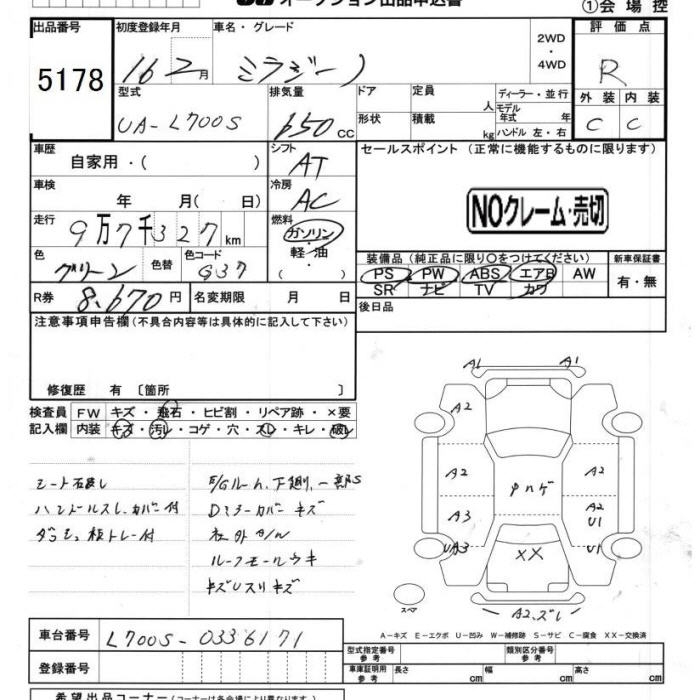 オークション出品申込書
①会場控
出品番号 初度登録年月 車名・グレード 2WD・4WD 評価点
5178 16 2月 ミラジーノ R
型式 排気量 ドア 定員 人 ディーラー・並行 外装 内装
UA-L700S 650cc 形状 積載 kg モデル年式 年 ハンドル 左・右 C C
車歴 シフト セールスポイント (正常に機能するものに限ります)
自家用・( ) AT
車検 年 月( 日) 冷房 AC
NOクレーム・売切
走行 9万7千327km 燃料 ガソリン・軽油・( )
装備品(純正品に限り○をつけてください) 新車保証書
色 グリーン 色替 色コード G37
PS PW ABS エアB AW 有・無
SR ナビ TV カワ
R券 8,670円 名変期限 月 日 後日品
注意事項申告欄(不具合内容等は具体的に記入して下さい)
修復歴 有〔箇所 〕
検査員 FW キズ・飛石・ヒビ割・リペア跡・×要
記入欄 内装 キズ・汚レ・コゲ・穴・スレ・キレ・破レ
ハンドルスレ カバー付 Dミラーカバーキズ
A1 A1
A2
A2 A2
A3 A2 U1
UA3 U1
XX
A2.ズレ
スペア
A-キズ E-エクボ U-凹み W-補修跡 S-サビ C-腐食 XX-交換済
車台番号 L700S-0336171
登録番号
型式指定番号 参考 類別区分番号 参考
車庫証明用 参考 長さ cm 幅 cm 高さ cm
希望出品コーナー(コーナーは各会場により異なります)